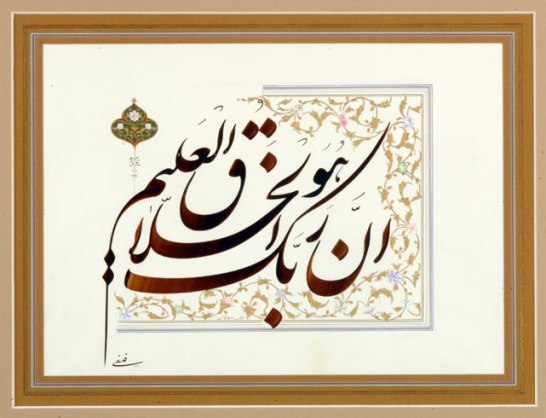 انَّ ربَّک هُوَ الخلّاق العلیم